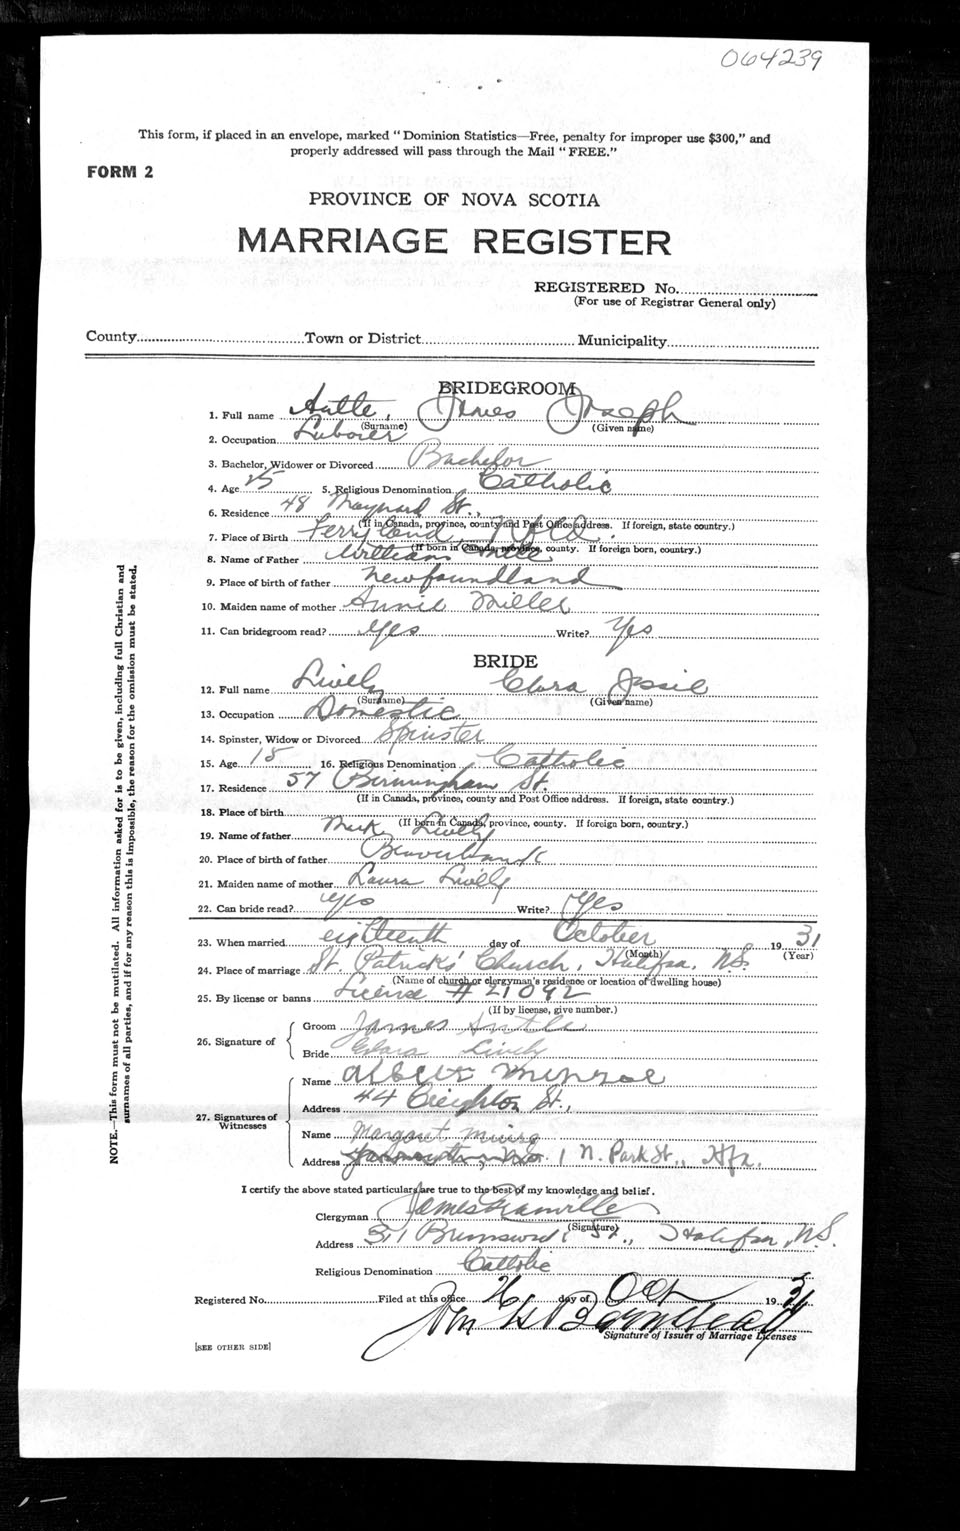 064239
This form, if placed in an envelope, marked "Dominion Statistics—Free, penalty for improper use $300," and
properly addressed will pass through the Mail "FREE."
FORM 2
PROVINCE OF NOVA SCOTIA
MARRIAGE REGISTER
REGISTERED No.
(For use of Registrar General only)
County Town or District Municipality
BRIDEGROOM
1. Full name James Joseph
(Surname) (Given name)
2. Occupation Laborer
3. Bachelor, Widower or Divorced Bachelor
4. Age 25 5. Religious Denomination Catholic
6. Residence 48 Maynard St.,
(If in Canada, province, county and Post Office address. If foreign, state country.)
7. Place of Birth Ferryland, Nfld.
(If born in Canada, province, county. If foreign born, country.)
8. Name of Father William
9. Place of birth of father Newfoundland
10. Maiden name of mother Annie Miller
11. Can bridegroom read? yes Write? Yes
BRIDE
12. Full name Lively Clara Jessie
(Surname) (Given name)
13. Occupation Domestic
14. Spinster, Widow or Divorced Spinster
15. Age 18 16. Religious Denomination Catholic
17. Residence 57 Birmingham St.
(If in Canada, province, county and Post Office address. If foreign, state country.)
18. Place of birth
(If born in Canada, province, county. If foreign born, country.)
19. Name of father Lively
20. Place of birth of father
21. Maiden name of mother Laura Lively
22. Can bride read? yes Write? Yes
23. When married eighteenth day of October 1931
(Month) (Year)
24. Place of marriage St. Patrick's Church, Halifax, N.S.
(Name of church or clergyman's residence or location of dwelling house)
25. By license or banns License # 21092
(If by license, give number.)
26. Signature of
Groom James
Bride Clara Lively
27. Signatures of Witnesses
Name Albert Munroe
Address 44 Creighton St.,
Name Margaret
Address 1 N. Park St., Hfx.
I certify the above stated particulars are true to the best of my knowledge and belief.
Clergyman James Granville
(Signature)
Address 311 Brunswick St., Halifax, N.S.
Religious Denomination Catholic
Registered No. Filed at this office day of Oct 1931
Signature of Issuer of Marriage Licenses
[SEE OTHER SIDE]
NOTE.—This form must not be mutilated. All information asked for is to be given, including full Christian and
surnames of all parties, and if for any reason this is impossible, the reason for the omission must be stated.